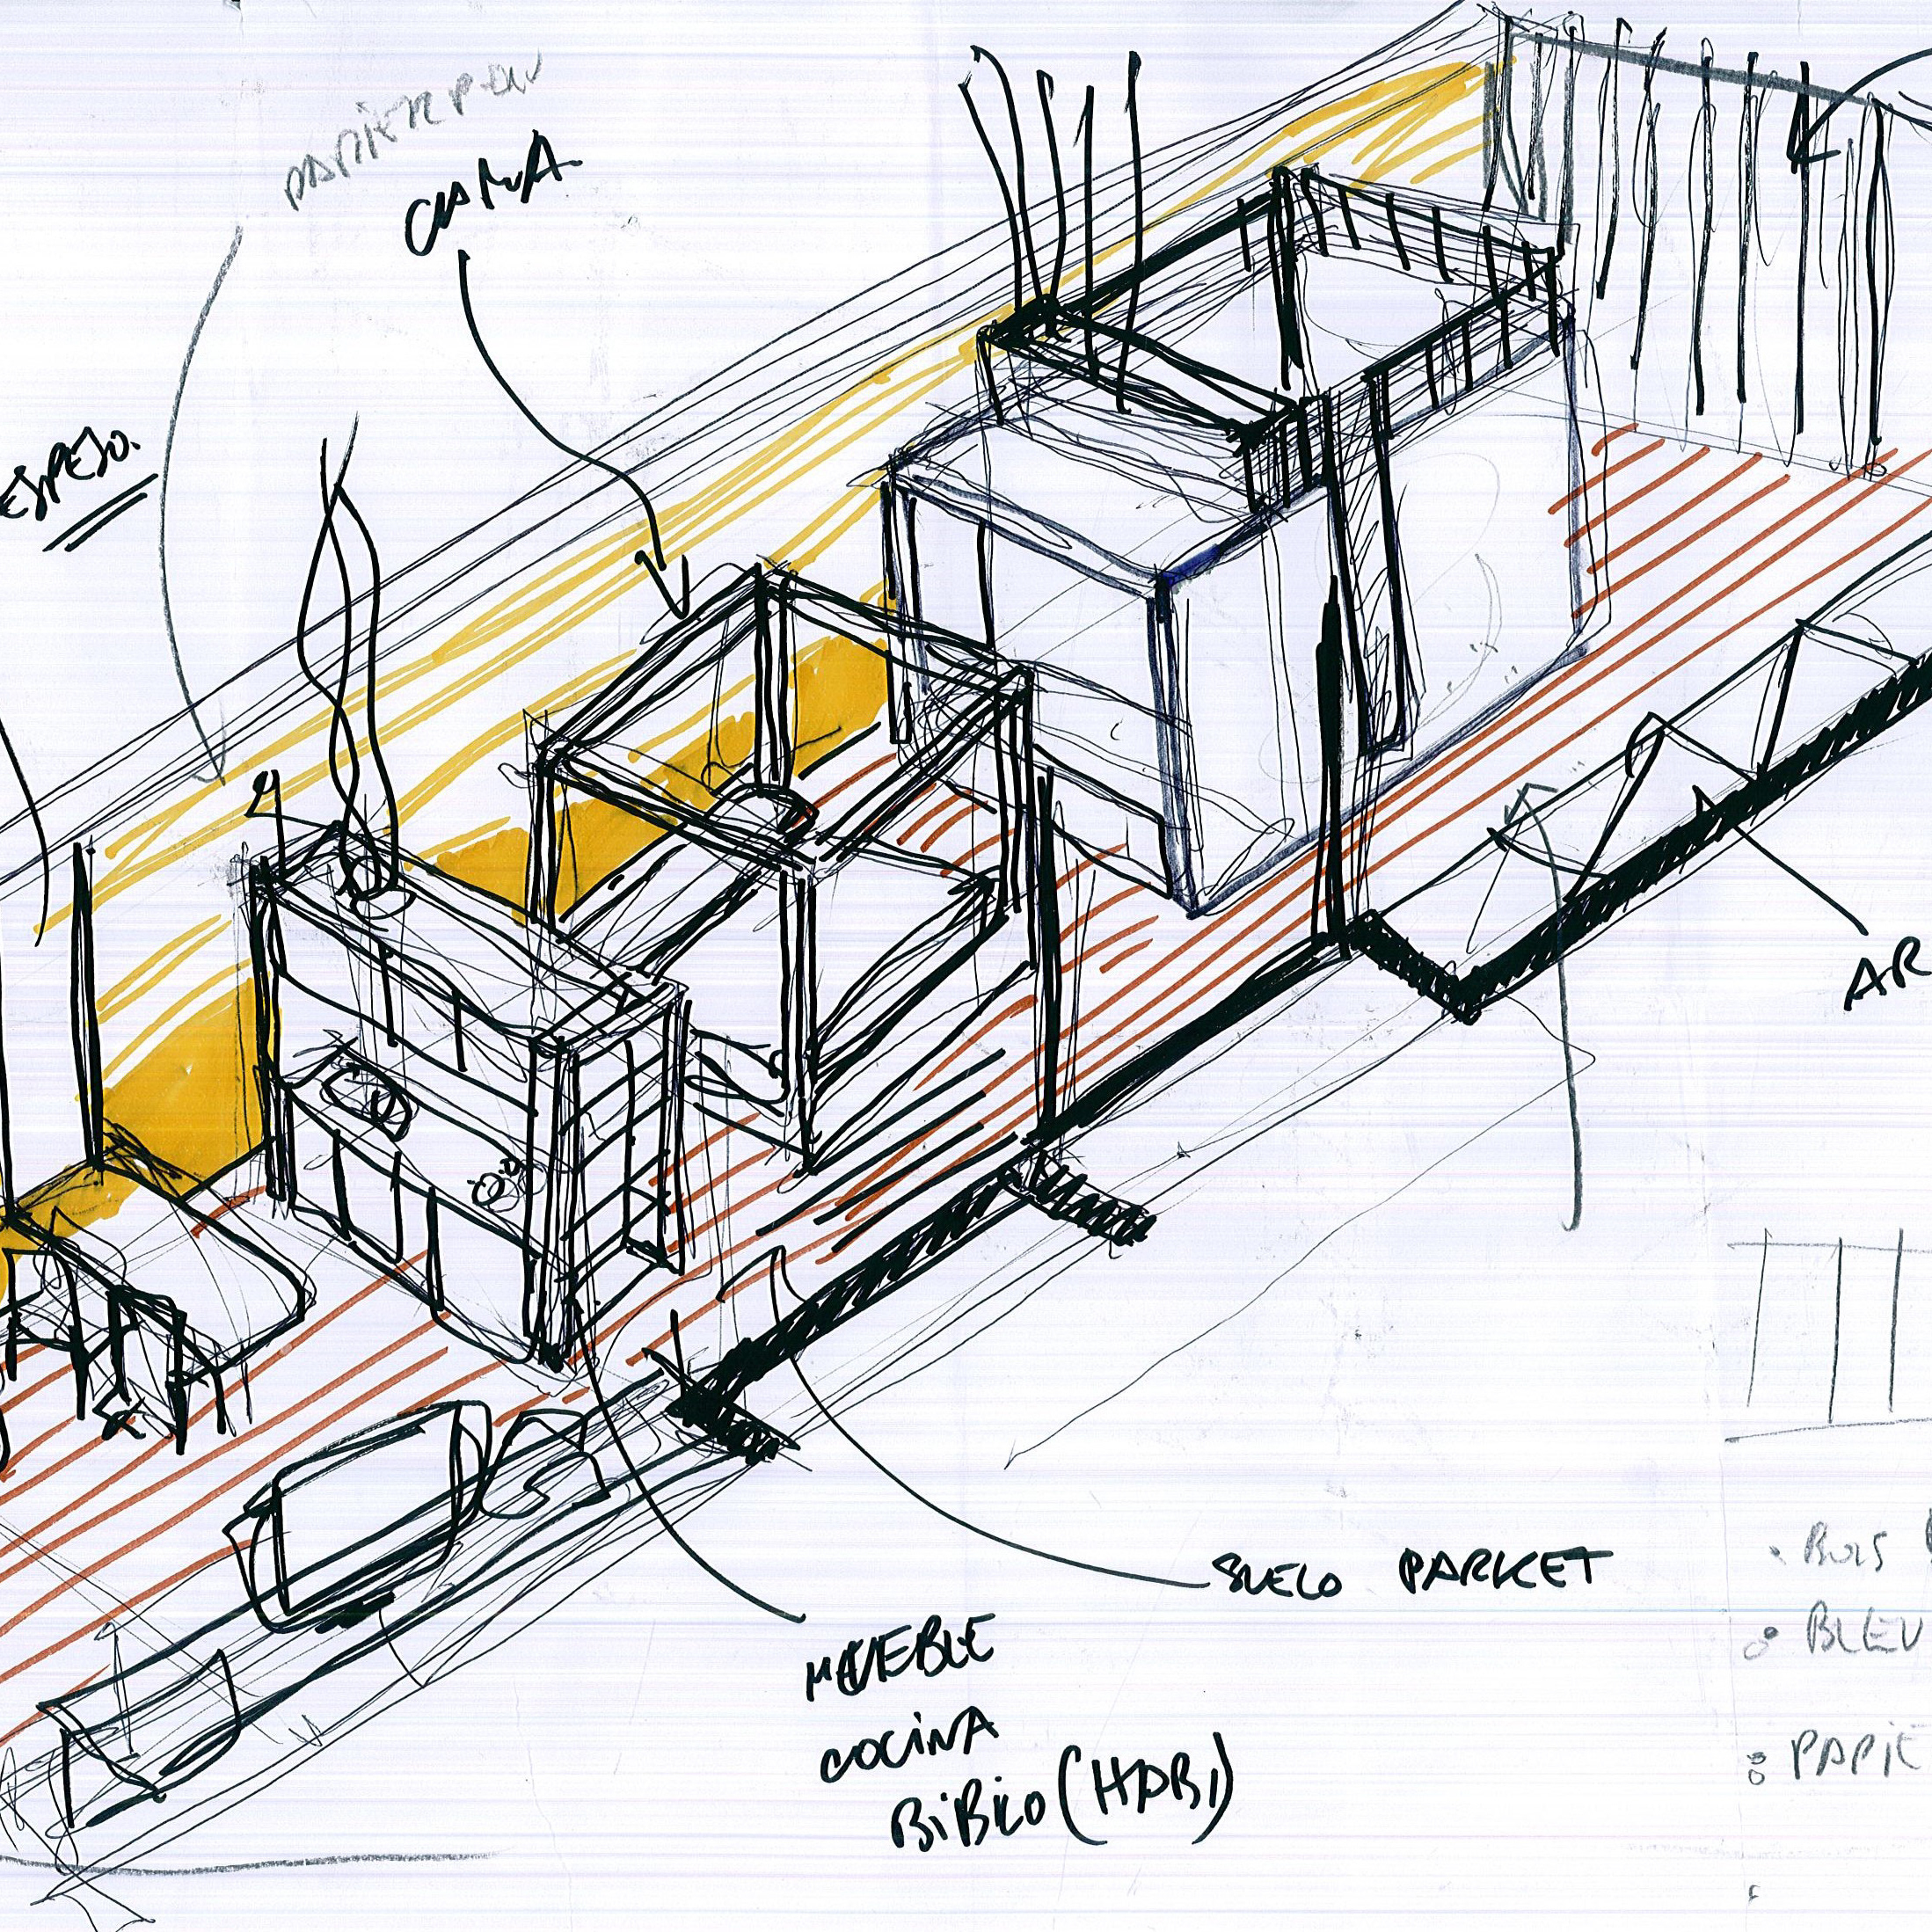 CAMA.
ESPEJO.
AR
SUELO PARKET
MUEBLE
COCINA
BIBLIO (HABI)
BOIS
BLEU
PAPIE